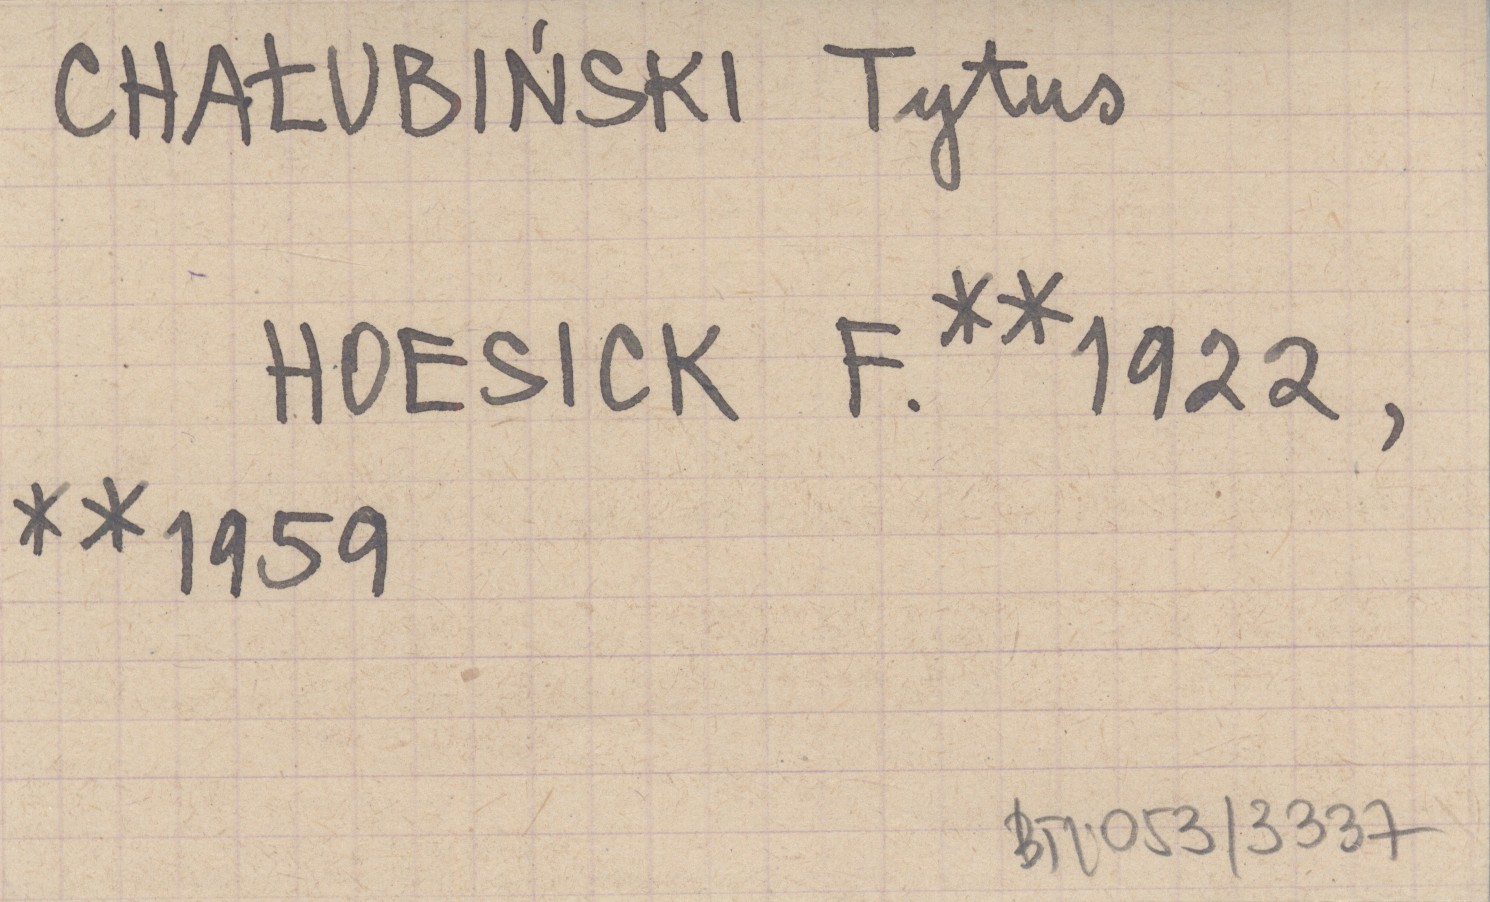 CHAŁUBIŃSKI Tytus
HOESICK F.**1922,
**1959
053/3337